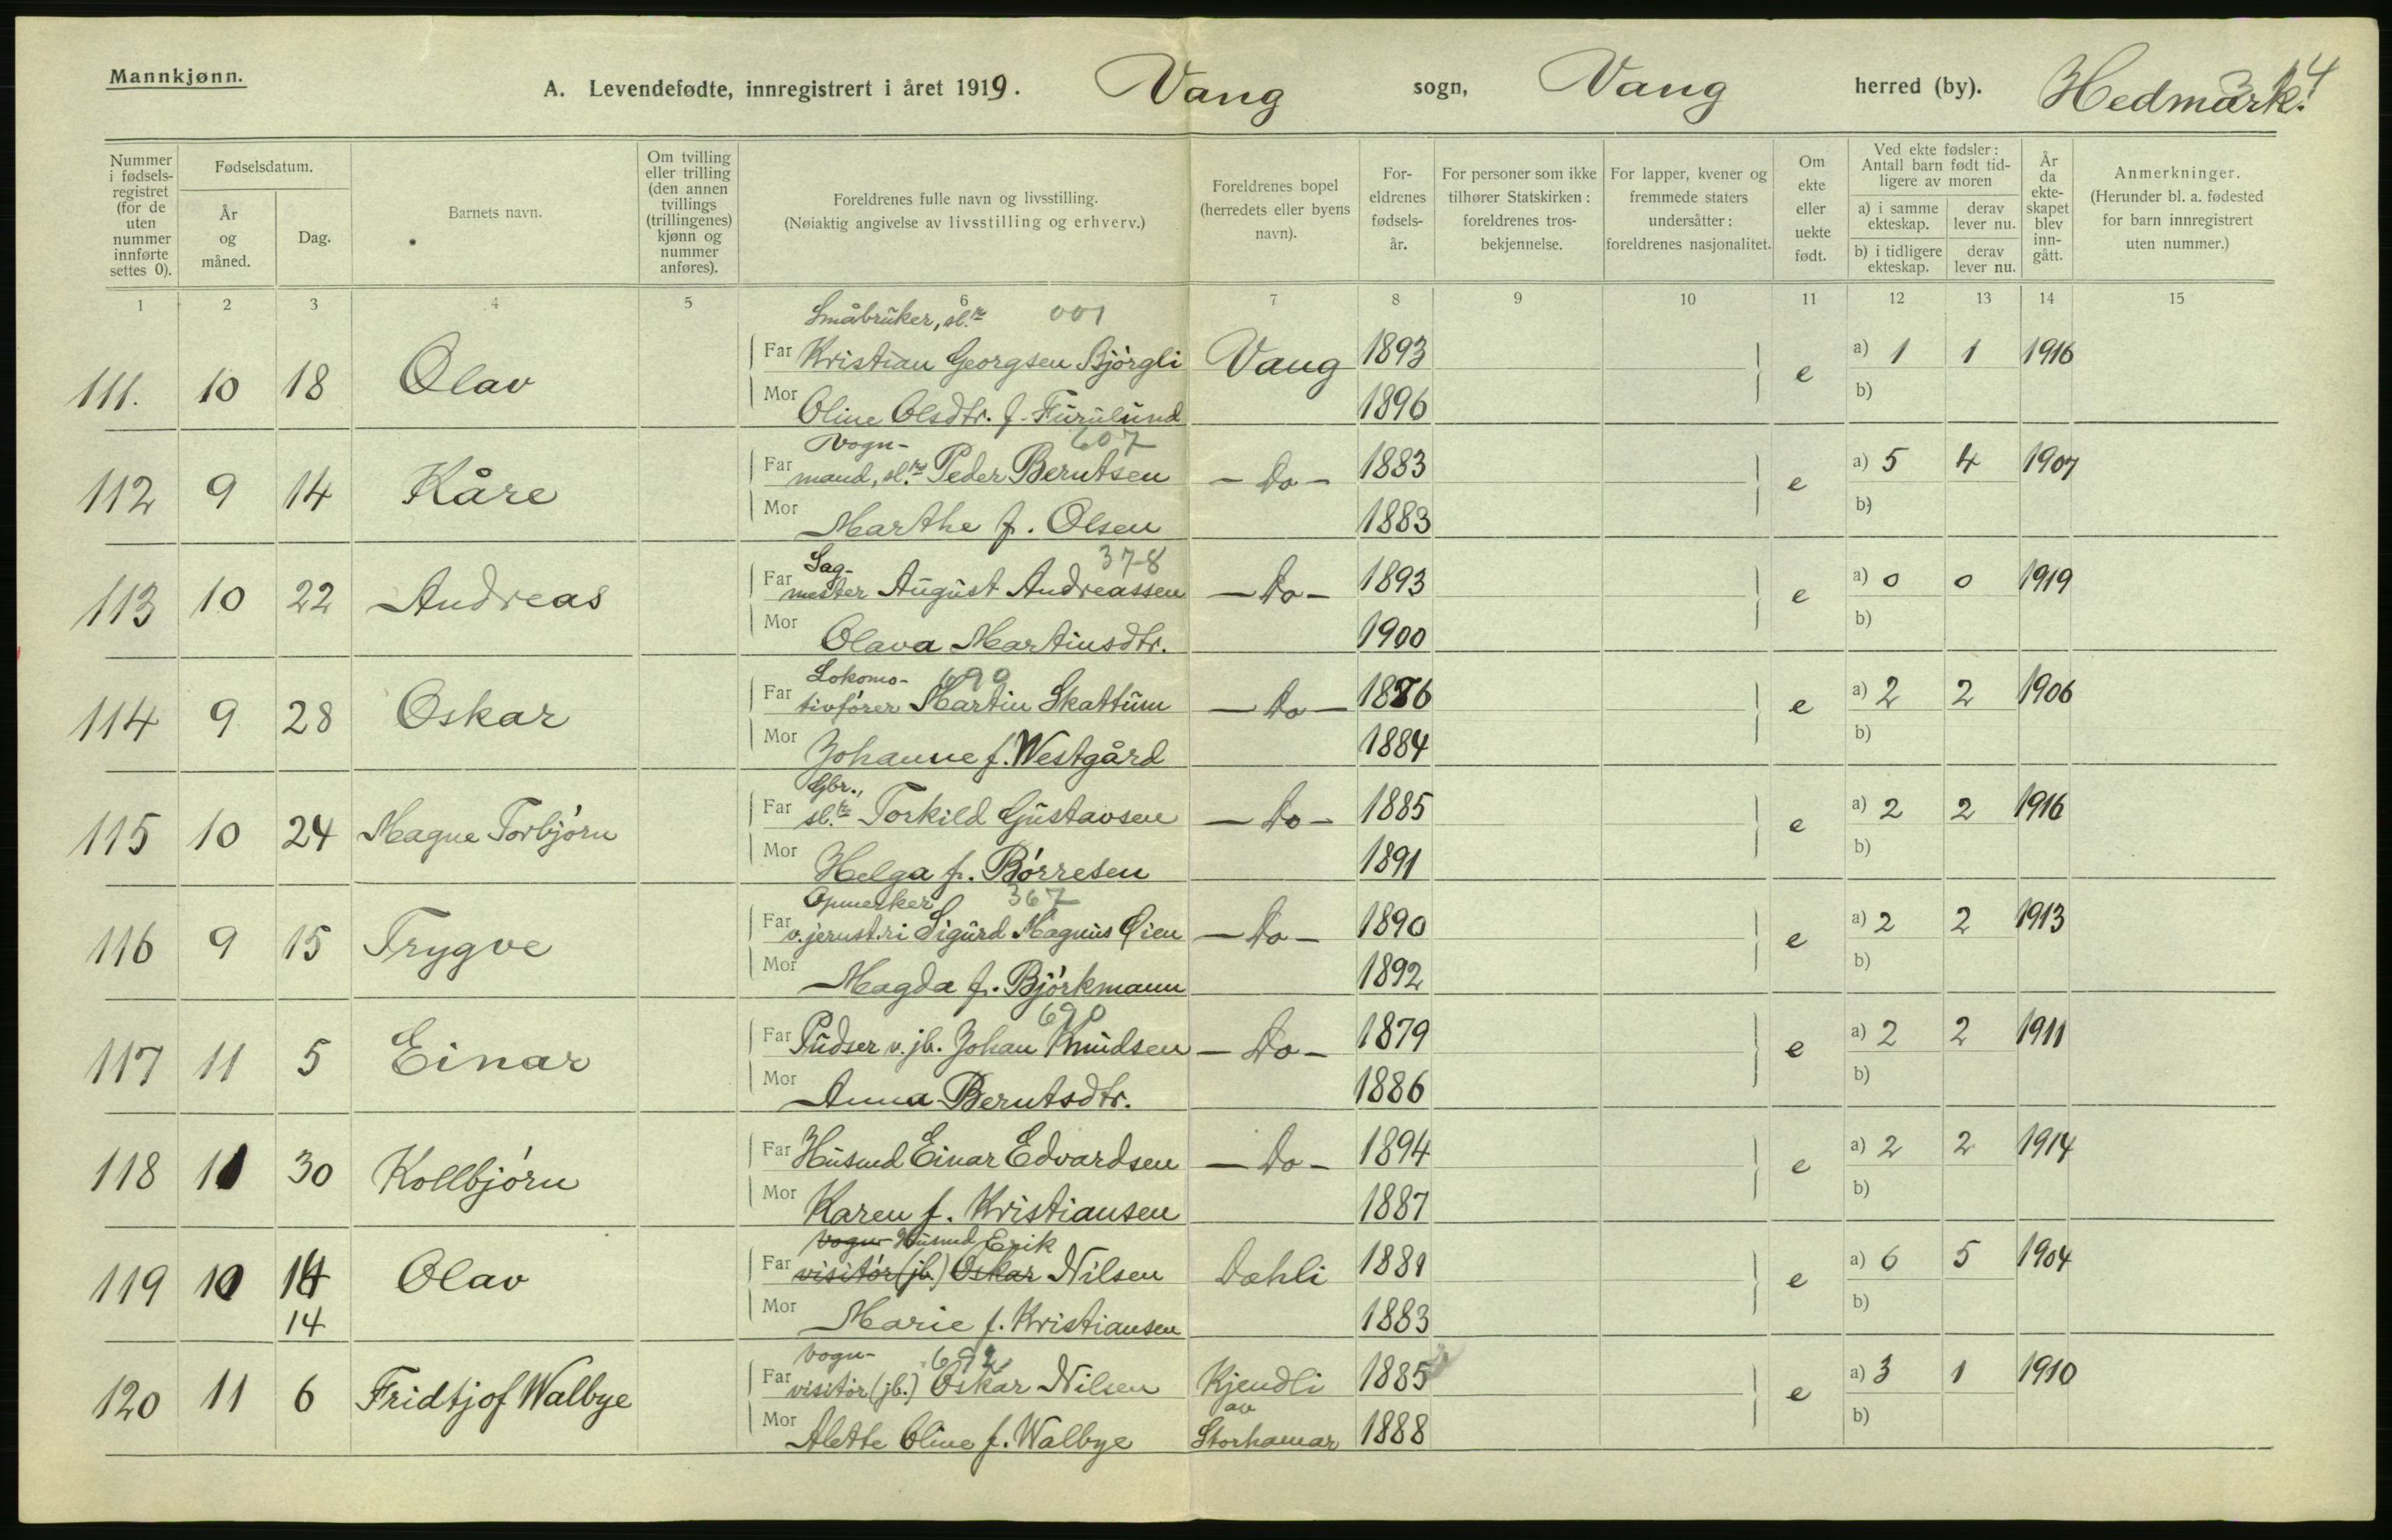 Mannkjønn.
A. Levendefødte, innregistrert i året 1919. Vang sogn, Vang herred (by). Hedmark.
Nummer i fødselsregistret (for de uten nummer innførte settes 0).
Fødselsdatum.
År og måned.
Dag.
Barnets navn.
Om tvilling eller trilling (den annen tvillings (trillingenes) kjønn og nummer anføres).
Foreldrenes fulle navn og livsstilling.
(Nøiaktig angivelse av livsstilling og erhverv.)
Foreldrenes bopel (herredets eller byens navn).
Foreldrenes fødselsår.
For personer som ikke tilhører Statskirken: foreldrenes trosbekjennelse.
For lapper, kvener og fremmede staters undersåtter: foreldrenes nasjonalitet.
Om ekte eller uekte født.
Ved ekte fødsler: Antall barn født tidligere av moren
a) i samme ekteskap. derav lever nu.
b) i tidligere ekteskap. derav lever nu.
År da ekteskapet blev inngått.
Anmerkninger.
(Herunder bl. a. fødested for barn innregistrert uten nummer.)
1 2 3 4 5 6 7 8 9 10 11 12 13 14 15
Småbruker, sl. 001
111. 10 18 Olav Far Kristian Georgsen Bjørgli Vang 1893 e a) 1 1 1916
Mor Oline Olsdtr. f. Furulund 1896 b)
Vogn- 607
112 9 14 Kåre Far mand, sl. Peder Berntsen - Do - 1883 e a) 5 4 1907
Mor Marthe f. Olsen 1883 b)
Sag- 378
113 10 22 Andreas Far mester August Andreassen - Do - 1893 e a) 0 0 1919
Mor Olava Martinsdtr. 1900 b)
Lokomo- 690
114 9 28 Oskar Far tivfører Martin Skattum - Do - 1876 e a) 2 2 1906
Mor Johanne f. Westgård 1884 b)
Gbr.,
115 10 24 Magne Torbjørn Far sl. Torkild Gustavsen - Do - 1885 e a) 2 2 1916
Mor Helga f. Børresen 1891 b)
Opmerker 367
116 9 15 Trygve Far v. jernst.ri Sigurd Magnus Øien - Do - 1890 e a) 2 2 1913
Mor Magda f. Bjørkmann 1892 b)
690
117 11 5 Einar Far Pudser v. jb. Johan Knudsen - Do - 1879 e a) 2 2 1911
Mor Anna Berntsdtr. 1886 b)
118 11 30 Kollbjørn Far Husmd Einar Edvardsen - Do - 1894 e a) 2 2 1914
Mor Karen f. Kristiansen 1887 b)
Vogn- Husmd Erik
119 10 14 Olav Far visitør (jb.) Oskar Nilsen Dæhli 1881 e a) 6 5 1904
14 Mor Marie f. Kristiansen 1883 b)
Vogn- 692
120 11 6 Fridtjof Walbye Far visitør (jb.) Oskar Nilsen Kjendli 1885 e a) 3 1 1910
av
Mor Alette Oline f. Walbye Storhamar 1888 b)